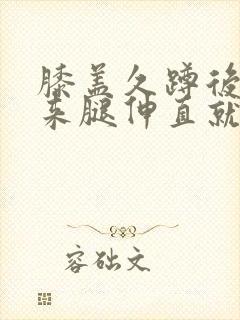 膝盖久蹲後
来腿伸直就
容础文